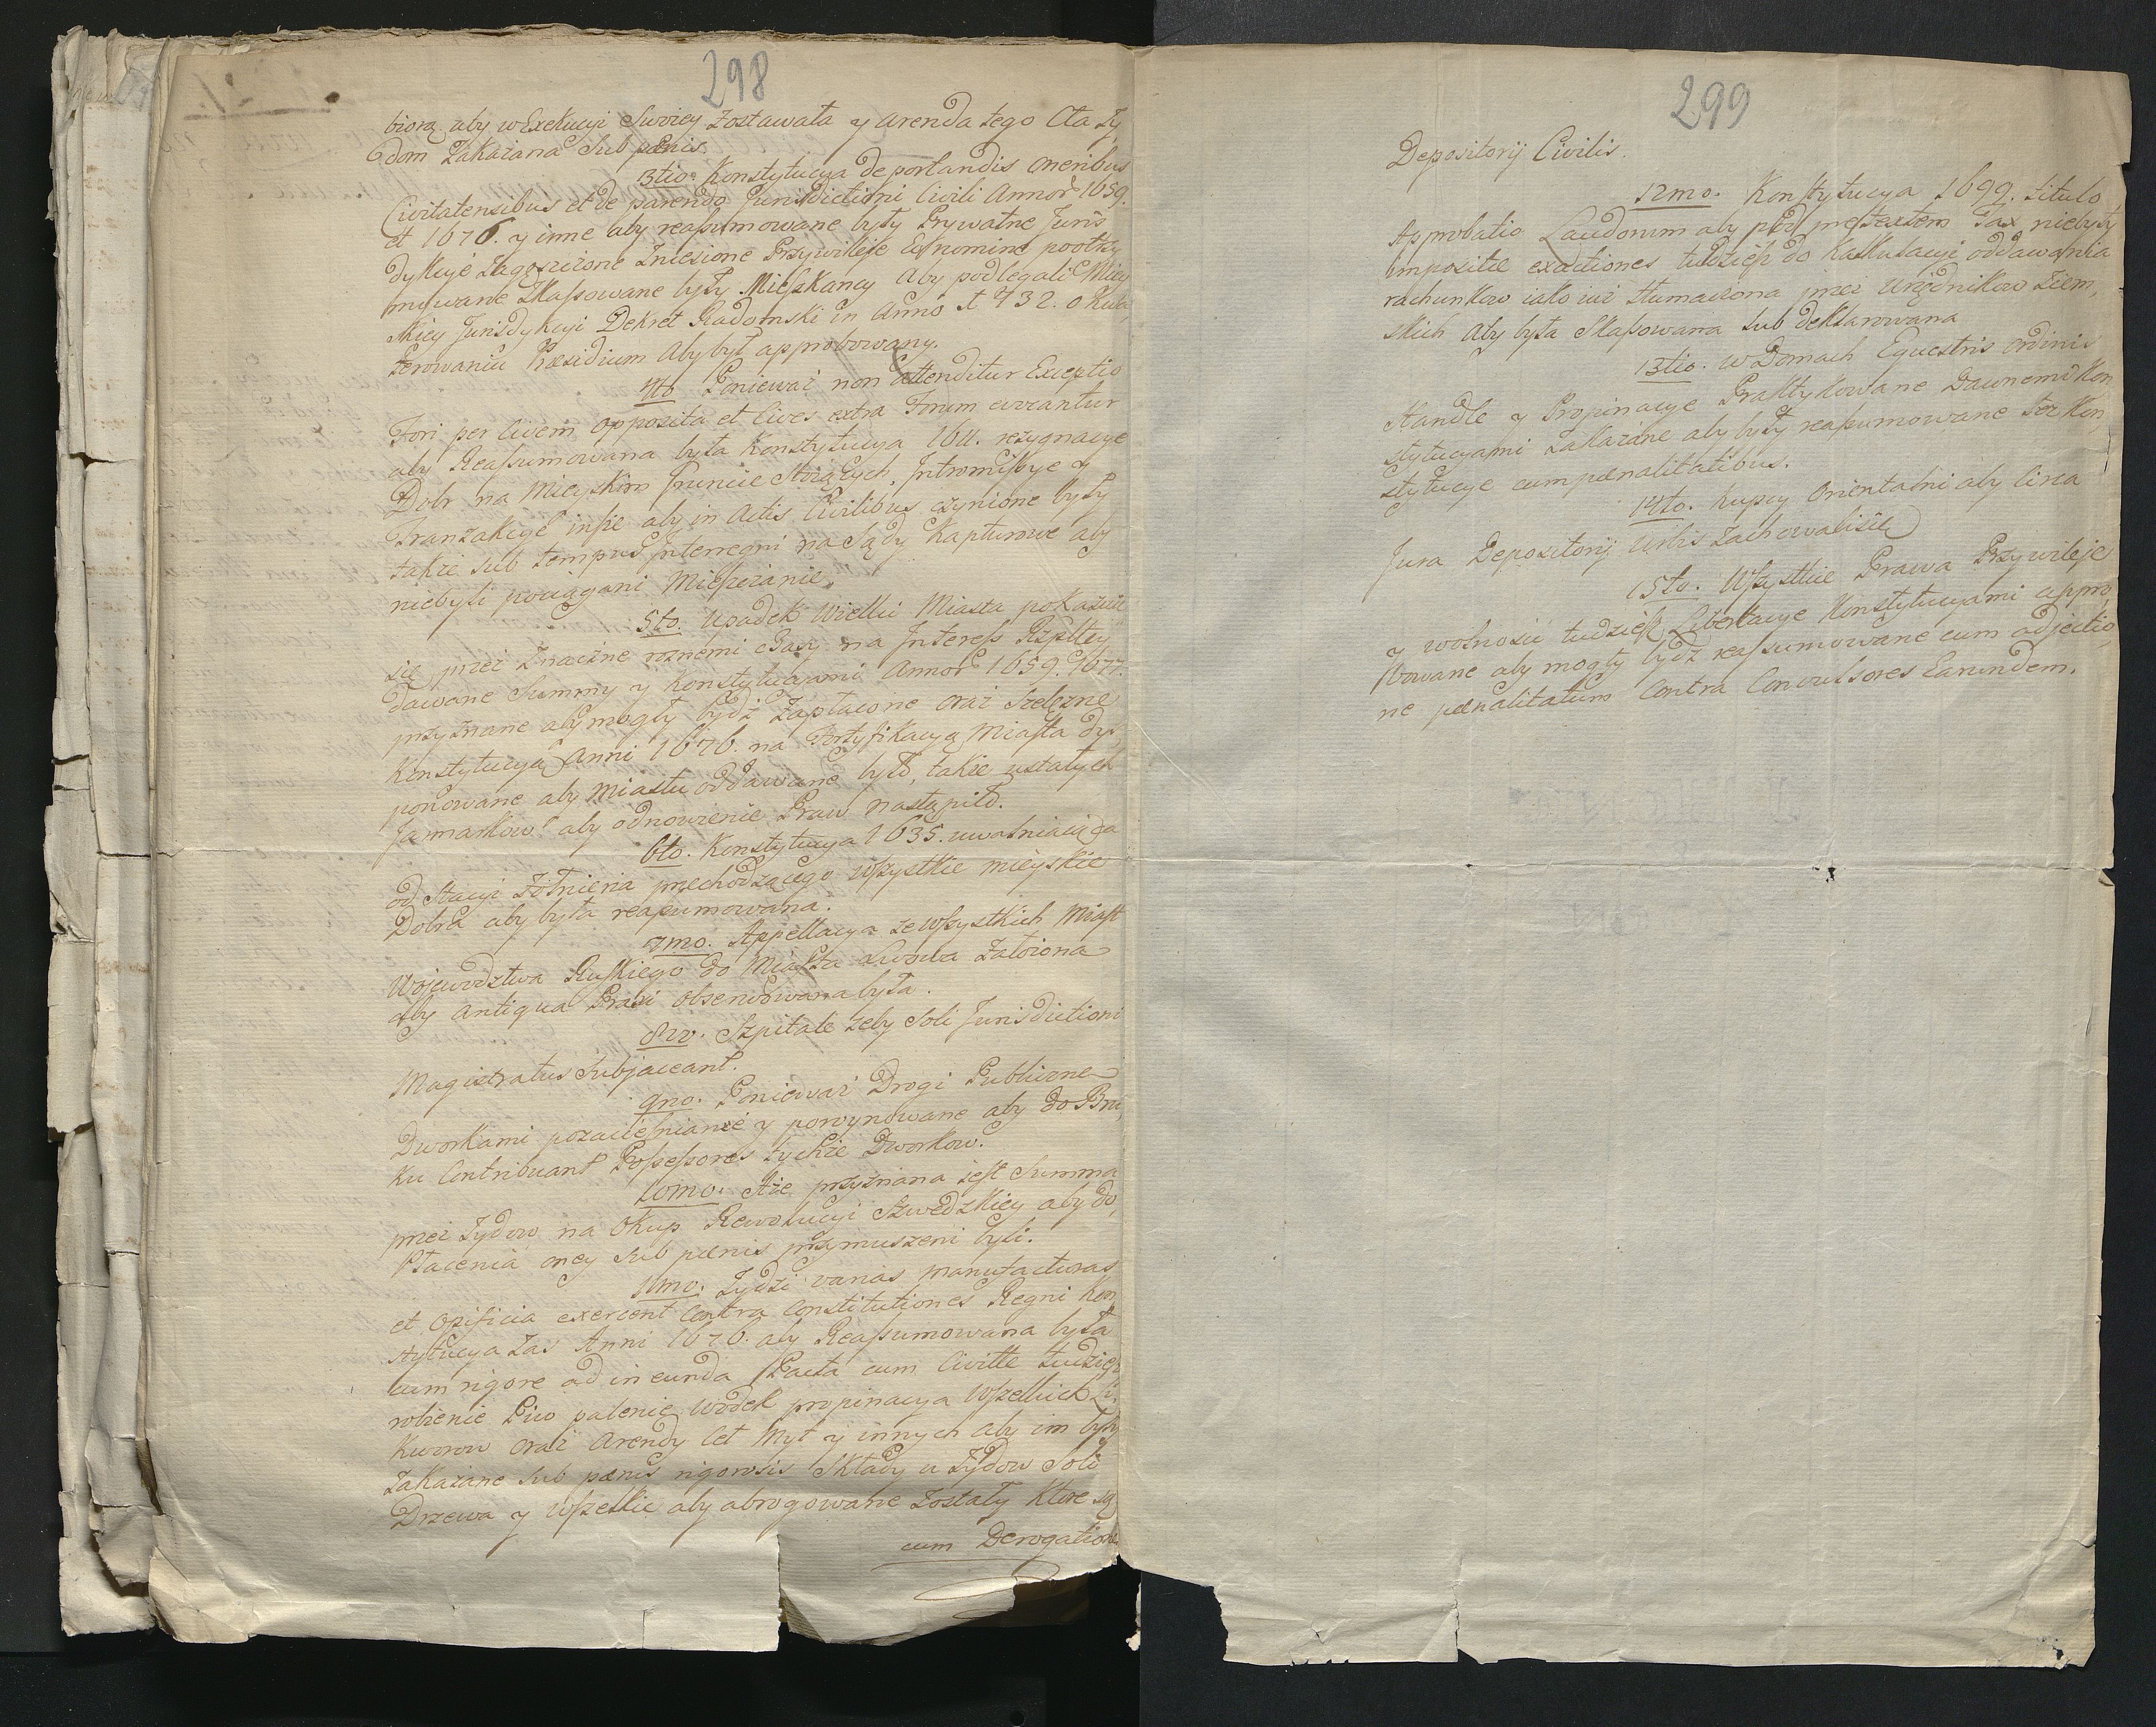 298
biorą aby w Exekucyi Swoiey zostawała y arenda tego Cła Ży,
dom zakazana Sub pœnis.
3tio. Konstytucya de portandis oneribus
Civitatensibus et de parendo Jurisdictioni Civili Annor. 1659.
et 1676. y inne aby reassumowane były Prywatne Juris
dykcye zagęszczone zniesione Przywileje Eo nomine pootrzy
mywane skassowane były Mieszkancy aby podlegali Miey
skiey Jurisdykcyi Dekret Radomski in Anno 1732. o Kwa,
terowaniu Præsidium Aby był approbowany.
4to. Poniewaz non attenditur Exceptio
Fori per Civem opposita et Cives extra Forum evocantur
aby Reassumowana była Konstytucya 1611. rezygnacye
Dobr na Mieyskim Gruncie stoiących, Intromissye y
Tranzakcye insze aby in Actis Civilibus czynione były
takze sub tempus Interregni na Sądy Kapturowe aby
niebyli pociągani Mieszczanie.
5to. Upadek Wielki Miasta pokazuie
się przez znaczne roznemi czasy na Interess Rzpltey
dawane Summy y Konstytucyami Annor. 1659. 1677.
przyznane aby mogły bydz zapłacone oraz szelęzne
Konstytucyą Anni 1676. na Fortyfikacyą Miasta dys,
ponowane aby Miastu oddawane było, takze ustałych
Jarmarkow aby odnowienie Praw nastąpiło.
6to. Konstytucya 1635. uwalniaiąca
od Stacyi Zołnierza przechodzącego wszystkie mieyskie
Dobra aby była reassumowana.
7mo. Appellacya ze wszystkich Miast
Wojewodztwa Ruskiego do Miasta Lwowa założona
aby antiqua Praxi obserwowana była.
8vo. Szpitale zeby Soli Jurisdictioni
Magistratus Subjaceant.
9no. Poniewaz Drogi Publiczne
Dworkami pozacieśniane y porujnowane aby do Bru,
ku Contribuant Possessores tychze Dworkow.
10mo. Aże przyznana jest Summa
przez Zydow na Okup Rewolucyi Szwedzkiey aby do,
płacenia oney sub pœnis przymuszeni byli.
11mo. Zydzi varias manufacturas
et opificia exercent Contra Constitutiones Regni Kon
stytucya zas Anni 1676. aby Reassumowana była
cum rigore ad ineunda Pacta cum Civitte tudziesz
robienie Piw palenie wodek propinacya wszelkich Li,
kworow oraz Arendy Cel Myt y innych aby im były
zakazane sub pœnis rigorosis Składy u Zydow Soli
Drzewa y wszelkie aby abrogowane zostały ktore są
cum Derogatione
299
Depositorij Civilis.
12mo. Konstytucya 1699. titulo
Approbatio Laudorum aby pod pretextem Tax niebyły
impositæ exactiones tudziesz do Kalkulacyi oddawania
rachunkow iako iuż tłumaczona przez Urzędnikow Ziem,
skich aby była skassowana sub deklarowana
13tio. w Domach Equestris Ordinis
Handle y Propinacye Praktykowane Dawnemi Kon
stytucyami zakazane aby były reassumowane też Kon,
stytucye cum pœnalitatibus.
14to. Kupcy Orientalni aby Circa
Jura Depositorij Urbis zachowali się
15to. Wszystkie Prawa Przywileje
y wolności tudziesz Libertacye Konstytucyami appro,
bowane aby mogły bydz reassumowane cum adjectio,
ne pœnalitatum Contra Convulsores Earundem.